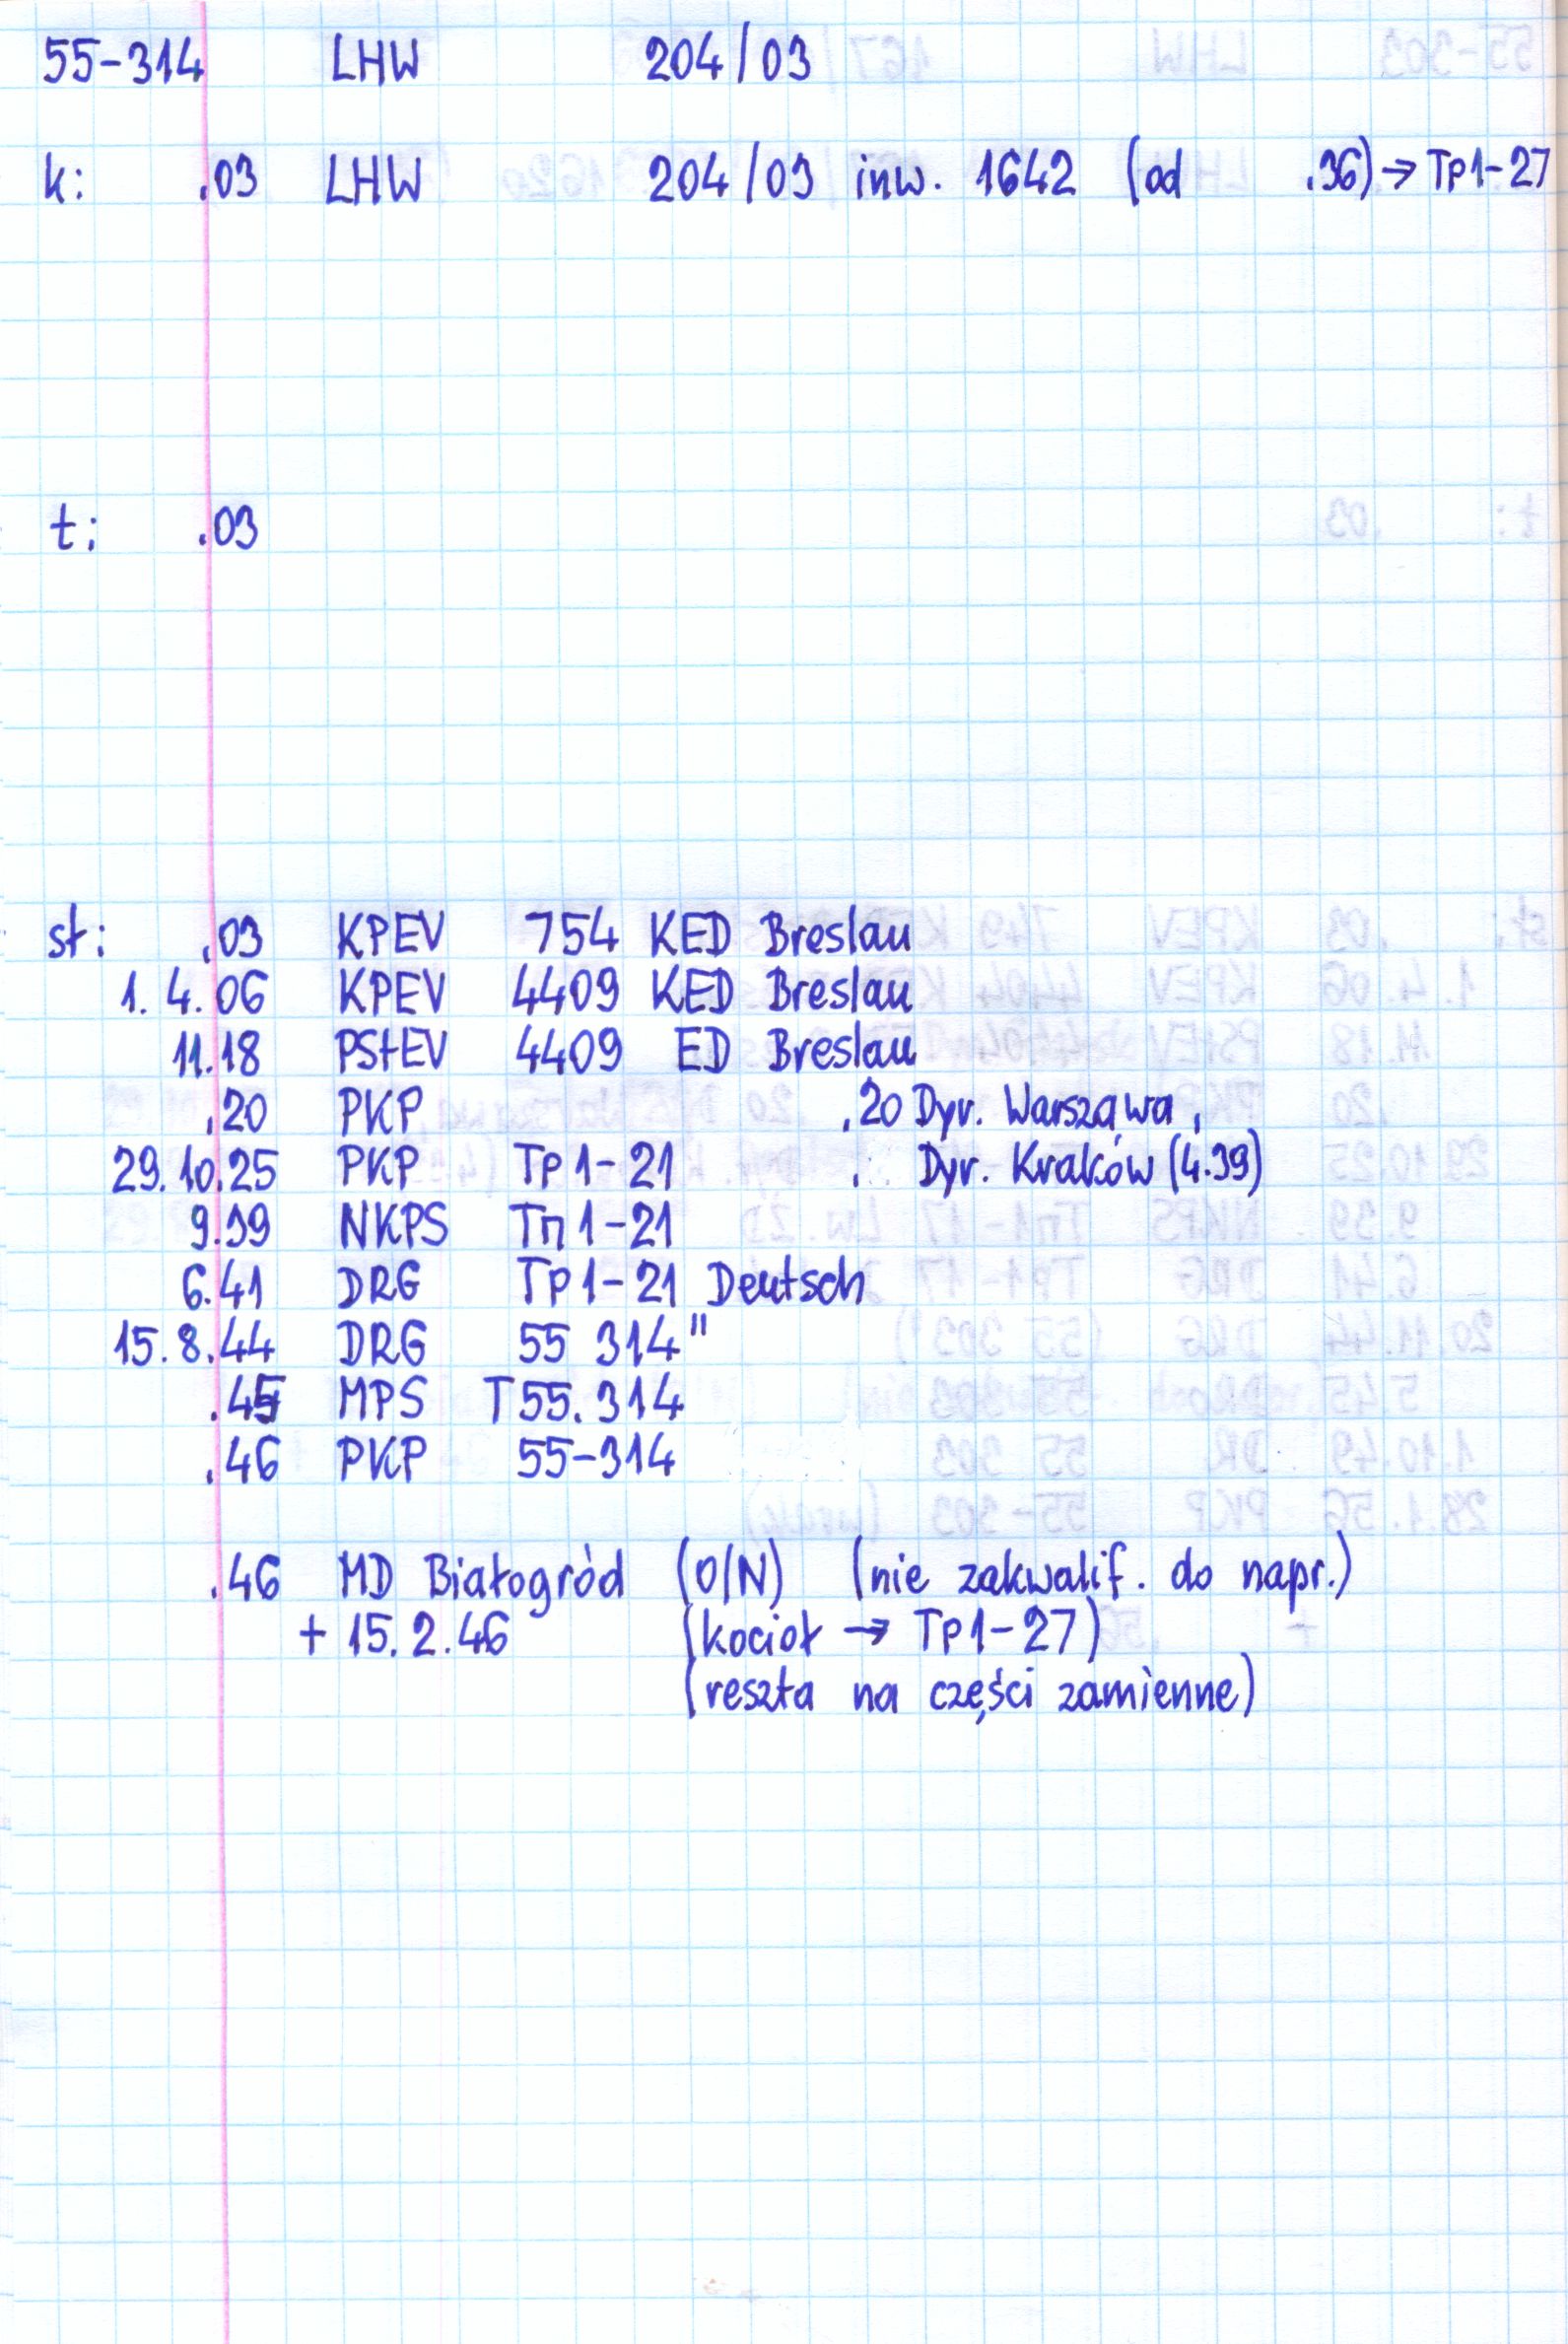 55-314 LHW 204/03
k: .03 LHW 204/03 inw. 1642 (od .36) → Tp1-27
t: .03
st: .03 KPEV 754 KED Breslau
1. 4. 06 KPEV 4409 KED Breslau
11.18 PStEV 4409 ED Breslau
.20 PKP .20 Dyr. Warszawa,
29.10.25 PKP Tp1-21 . Dyr. Kraków (4.39)
9.39 NKPS Тп1-21
6.41 DRG Tp1-21 Deutsch
15.8.44 DRG 55 314"
.45 MPS T55.314
.46 PKP 55-314
.46 MD Białogród (O/N) (nie zakwalif. do napr.)
+ 15.2.46 (kocioł → Tp1-27)
(reszta na części zamienne)